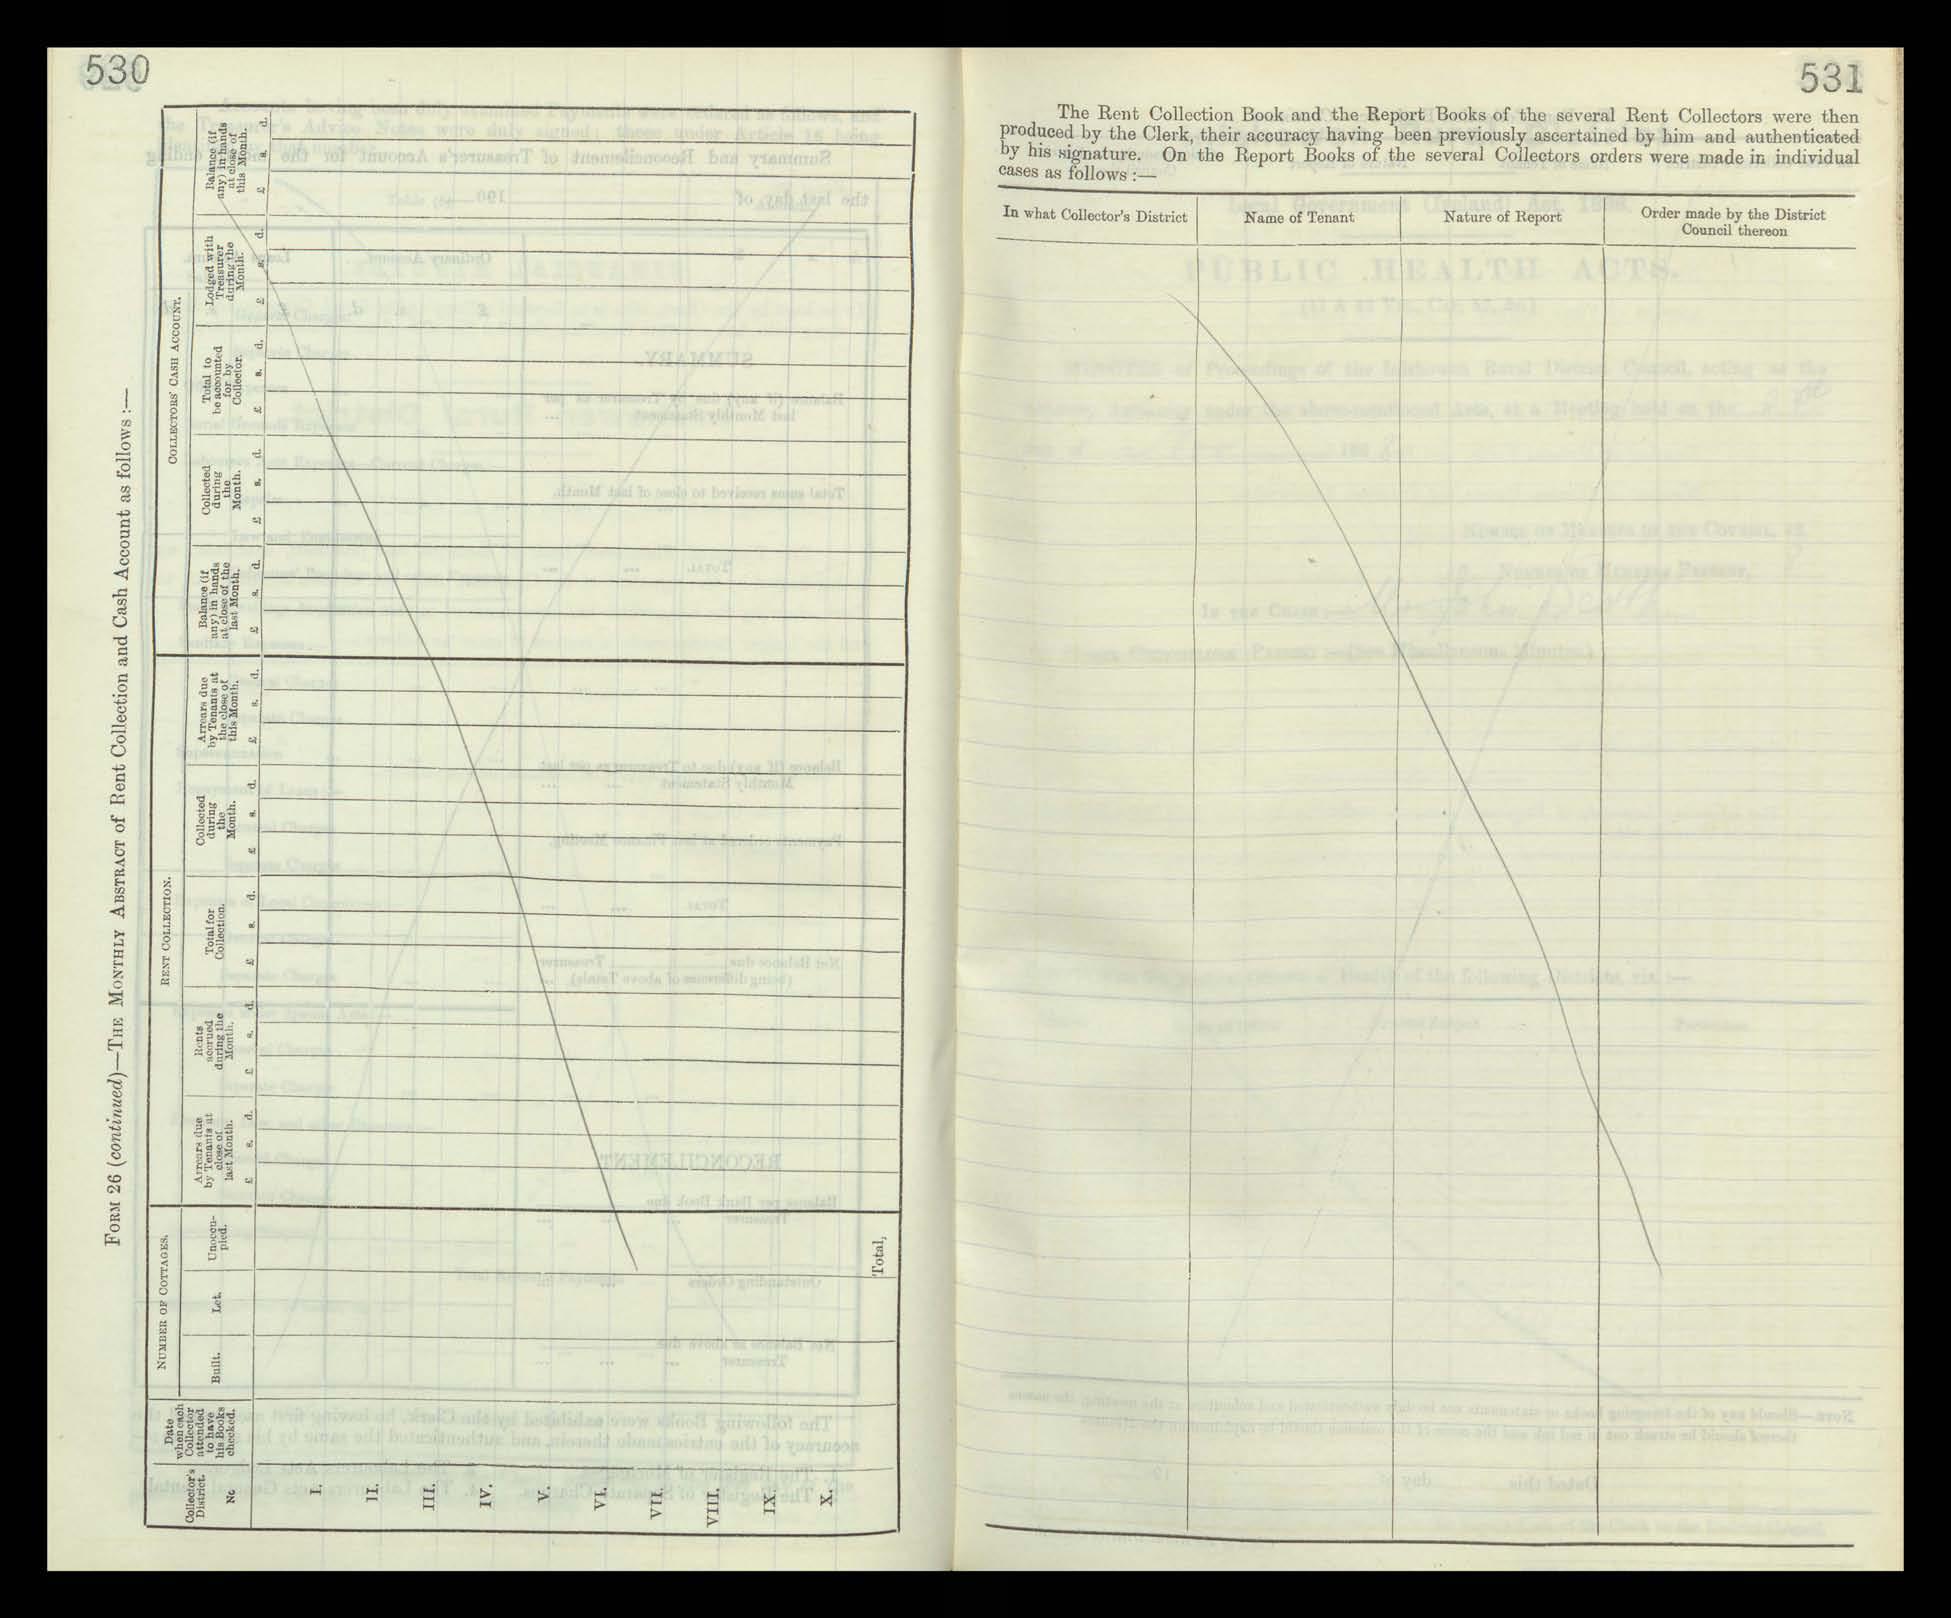 530
FORM 26 (continued)—THE MONTHLY ABSTRACT of Rent Collection and Cash Account as follows :—
Collector's District.
No
Date when each Collector attended to have his Books checked.
NUMBER OF COTTAGES.
Built.
Let.
Unoccu-
pied.
RENT COLLECTION.
Arrears due
by Tenants at
close of
last Month.
£ s. d.
Rents
accrued
during the
Month.
£ s. d.
Total for
Collection.
£ s. d.
Collected
during
the
Month.
£ s. d.
Arrears due
by Tenants at
the close of
this Month.
£ s. d.
COLLECTORS' CASH ACCOUNT.
Balance (if
any) in hands
at close of the
last Month.
£ s. d.
Collected
during
the
Month.
£ s. d.
Total to
be accounted
for by
Collector.
£ s. d.
Lodged with
Treasurer
during the
Month.
£ s. d.
Balance (if
any) in hands
at close of
this Month.
£ s. d.
I.
II.
III.
IV.
V.
VI.
VII.
VIII.
IX.
X.
Total,
531
The Rent Collection Book and the Report Books of the several Rent Collectors were then
produced by the Clerk, their accuracy having been previously ascertained by him and authenticated
by his signature. On the Report Books of the several Collectors orders were made in individual
cases as follows :—
In what Collector's District
Name of Tenant
Nature of Report
Order made by the District
Council thereon